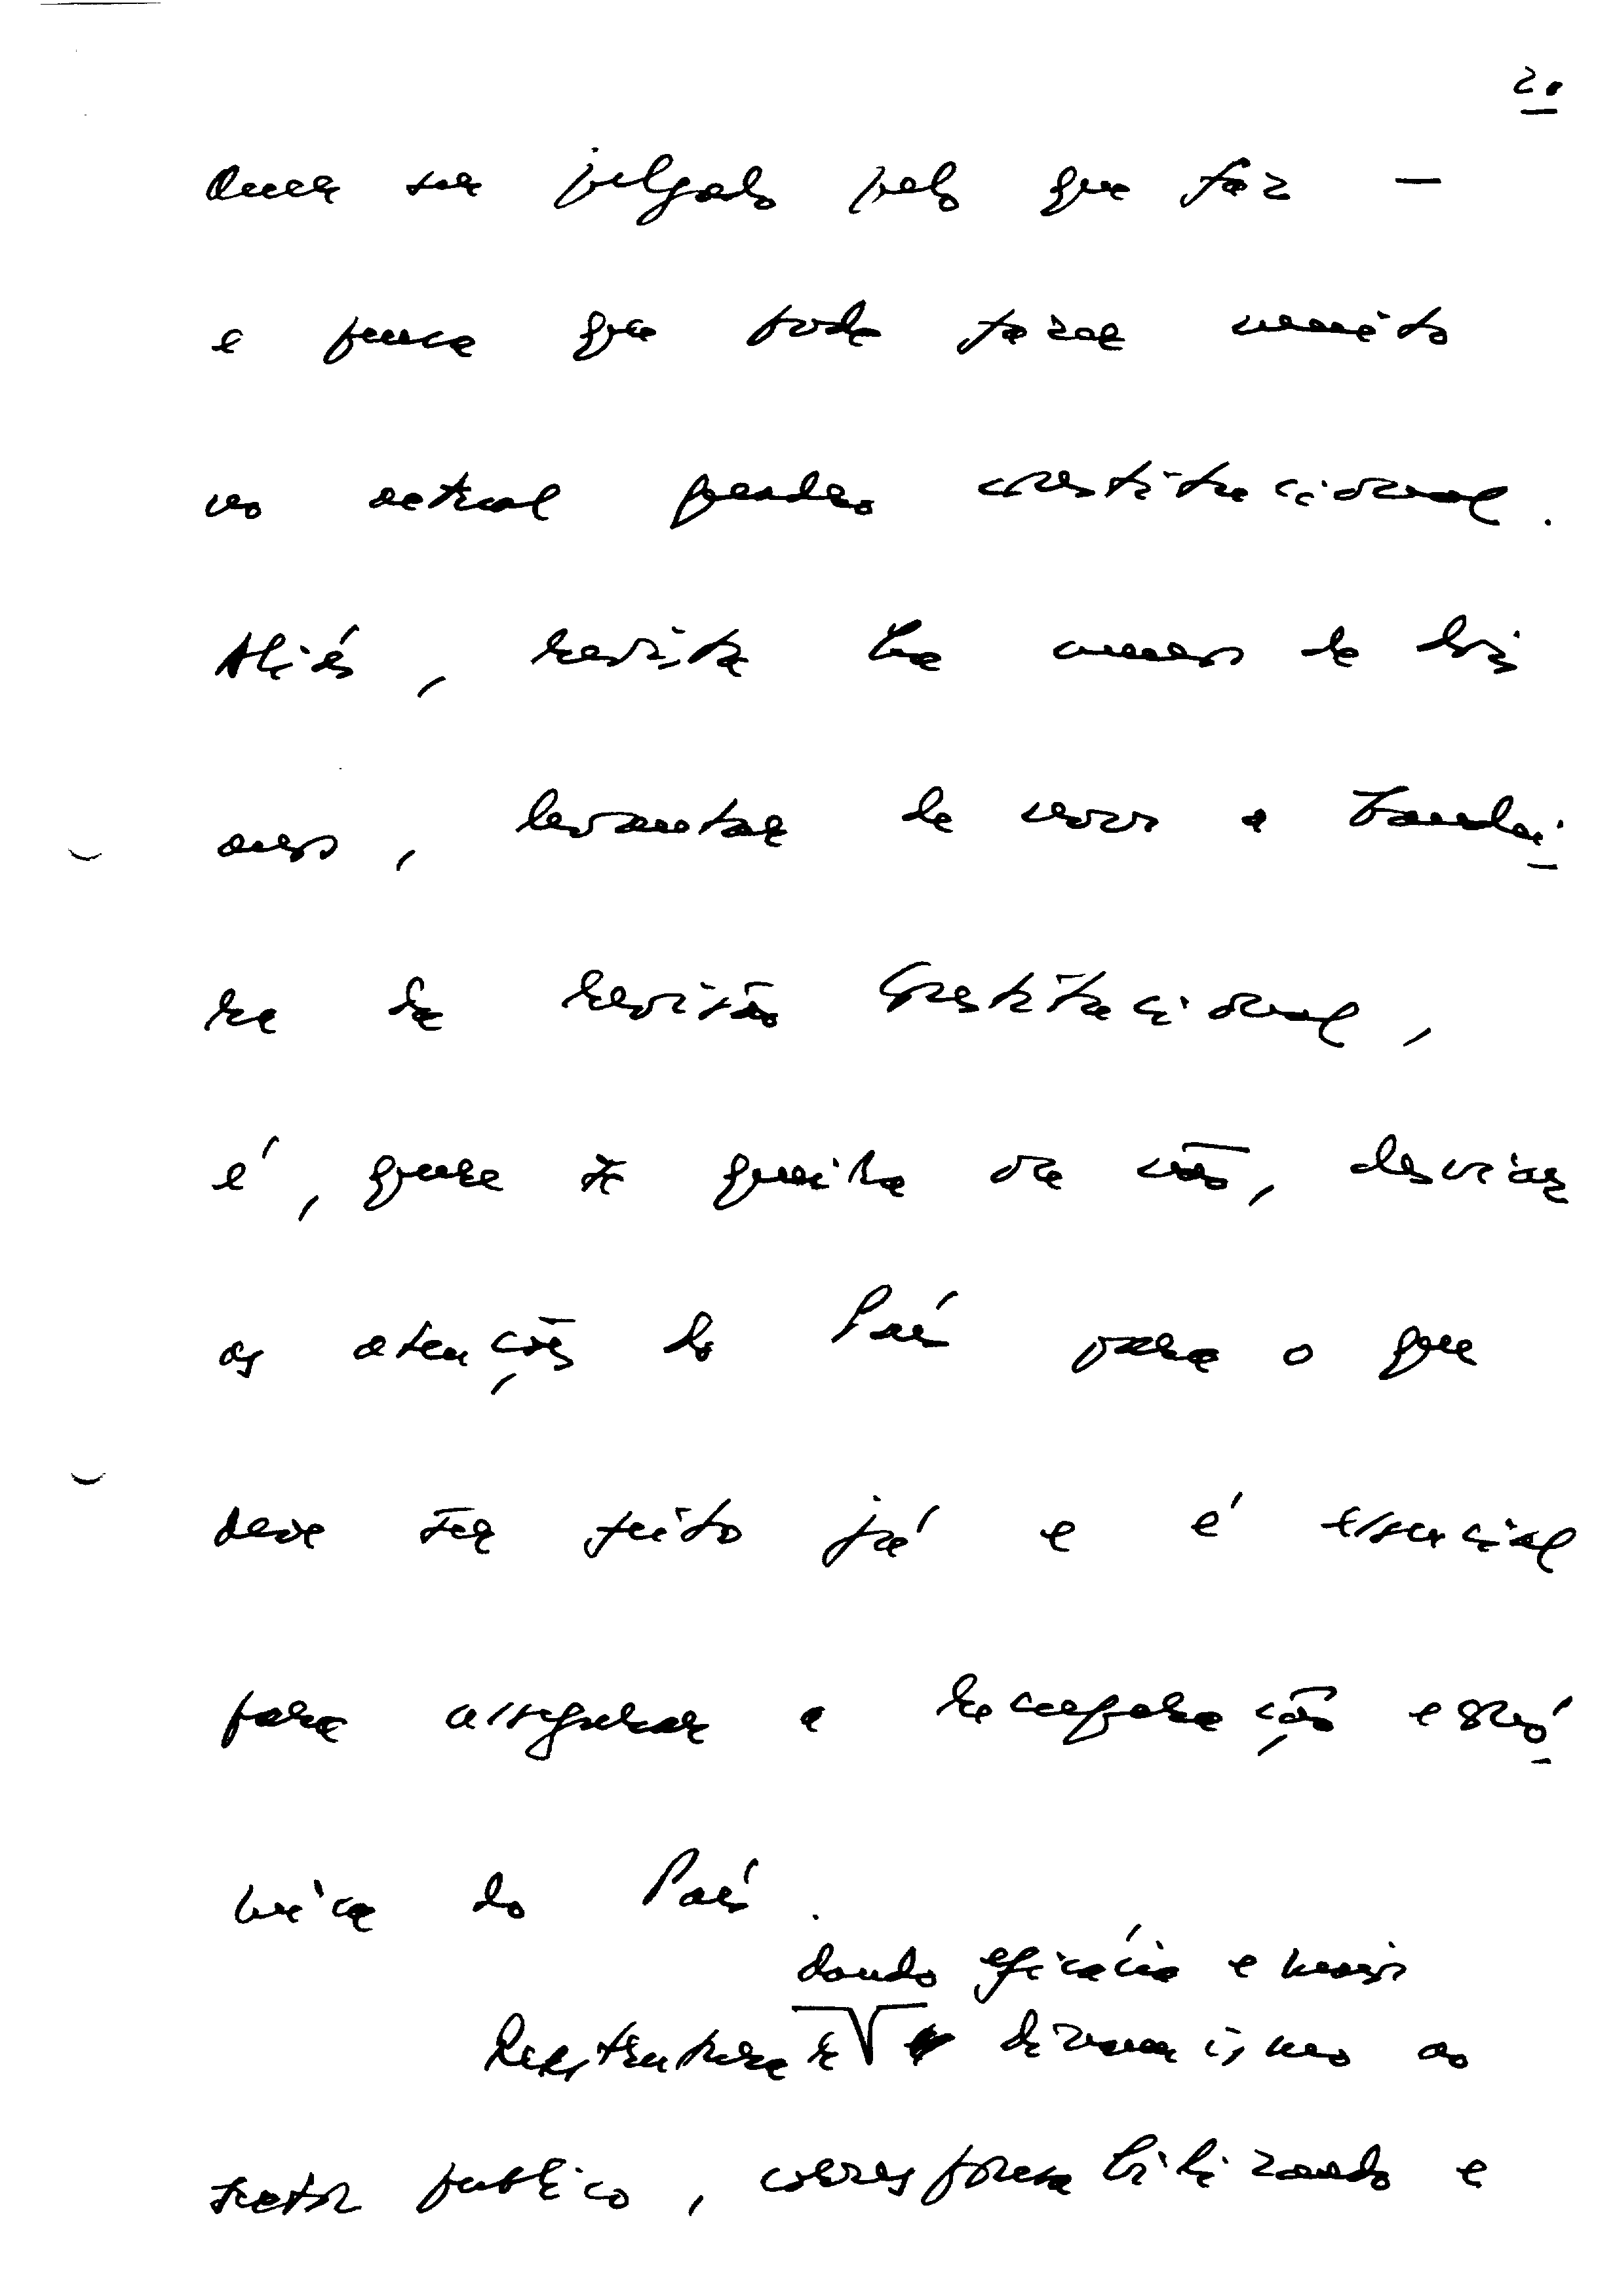 20
Quer ser julgado pelo que faz —
e pensa que pode fazer muito
no actual quadro constitucional.
Aliás, revista há menos de dois
anos, levantar de novo a bandei-
ra da revisão Constitucional,
é, quer se queira ou não, desviar
as atenções do País para o que
deve ser feito já e é essencial
para assegurar a recuperação econó-
mica do País.
dando eficácia e maior
Reestruturar e dinamismo ao
sector público, corresponsabilizando e